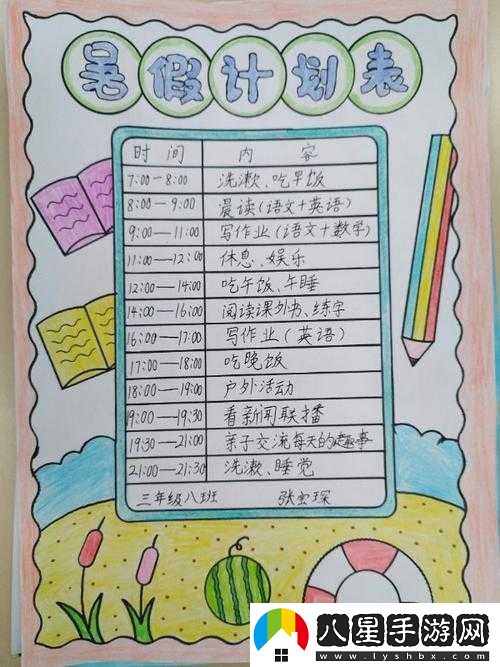 暑假计划表
时 间 内 容
7:00-8:00 洗漱、吃早饭
8:00-9:00 晨读(语文+英语)
9:00-11:00 写作业(语文+数学)
11:00-12:00 休息、娱乐
12:00-14:00 吃午饭、午睡
14:00-16:00 阅读课外书、练字
16:00-17:00 写作业(英语)
17:00-18:00 吃晚饭
18:00-19:00 户外活动
19:00-19:30 看新闻联播
19:30-21:00 亲子交流每天的趣事
21:00-21:30 洗漱、睡觉
三年级八班 张 琛
八星手游网
www.lyshbx.com